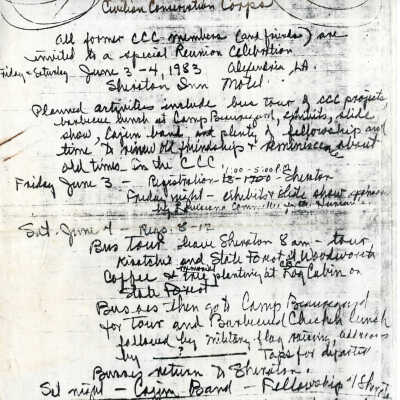 Civilian Conservation Corps
All former CCC members (and friends) are
invited to a special Reunion Celebration
Friday - Saturday June 3-4, 1983 Alexandria, LA.
Sheraton Inn Motel.
Planned activities include bus tour of CCC projects
barbecue lunch at Camp Beauregard, exhibits, slide
show, Cajun band, and plenty of fellowship and
time to renew old friendships & reminisce about
old times in the CCC.
1:00 - 5:00 P.M.
Friday June 3 - Registration - Sheraton
Friday night - exhibits & slide show sponsored
by Louisiana Committee for the Humanities
Sat. June 4 - Regs. 8-12
Bus Tour leave Sheraton 8 am - tour
Kisatchie and State Forest & Woodworth
Coffee & memorial tree planting at CCC Log Cabin on
State Forest
Busses then go to Camp Beauregard
for tour and Barbecued Chicken lunch
followed by military flag raising, address
by ? Taps for departed
Busses return to Sheraton.
Sat night - Cajun Band - Fellowship at Sheraton